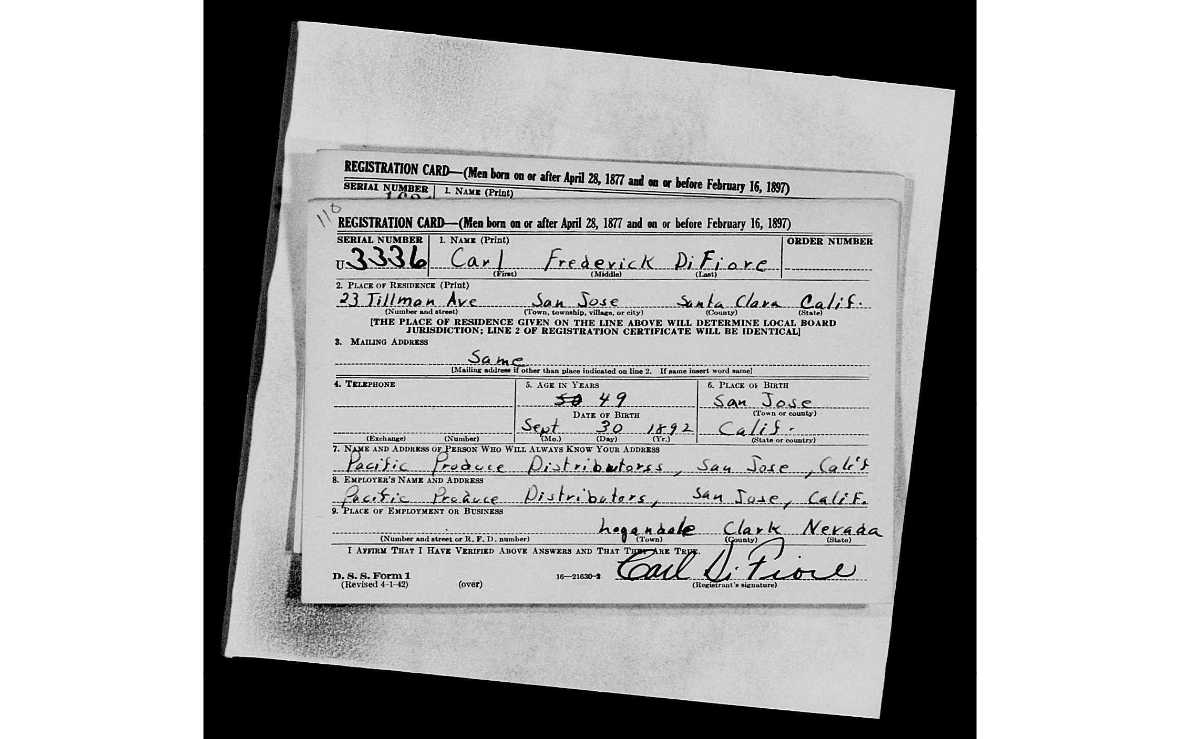 REGISTRATION CARD—(Men born on or after April 28, 1877 and on or before February 16, 1897)
SERIAL NUMBER 1. NAME (Print)
110
REGISTRATION CARD—(Men born on or after April 28, 1877 and on or before February 16, 1897)
SERIAL NUMBER 1. NAME (Print) ORDER NUMBER
U 3336 Carl Frederick DiFiore
(First) (Middle) (Last)
2. PLACE OF RESIDENCE (Print)
23 Tillman Ave San Jose Santa Clara Calif.
(Number and street) (Town, township, village, or city) (County) (State)
[THE PLACE OF RESIDENCE GIVEN ON THE LINE ABOVE WILL DETERMINE LOCAL BOARD
JURISDICTION; LINE 2 OF REGISTRATION CERTIFICATE WILL BE IDENTICAL]
3. MAILING ADDRESS
Same
[Mailing address if other than place indicated on line 2. If same insert word same]
4. TELEPHONE 5. AGE IN YEARS 6. PLACE OF BIRTH
50 49 San Jose
DATE OF BIRTH (Town or county)
Sept 30 1892 Calif.
(Exchange) (Number) (Mo.) (Day) (Yr.) (State or country)
7. NAME AND ADDRESS OF PERSON WHO WILL ALWAYS KNOW YOUR ADDRESS
Pacific Produce Distributorss, San Jose, Calif
8. EMPLOYER'S NAME AND ADDRESS
Pacific Produce Distributors, San Jose, Calif.
9. PLACE OF EMPLOYMENT OR BUSINESS
Logandale Clark Nevada
(Number and street or R. F. D. number) (Town) (County) (State)
I AFFIRM THAT I HAVE VERIFIED ABOVE ANSWERS AND THAT THEY ARE TRUE.
Carl Di Fiore
D. S. S. Form 1 16—21630-2
(Revised 4-1-42) (over) (Registrant's signature)